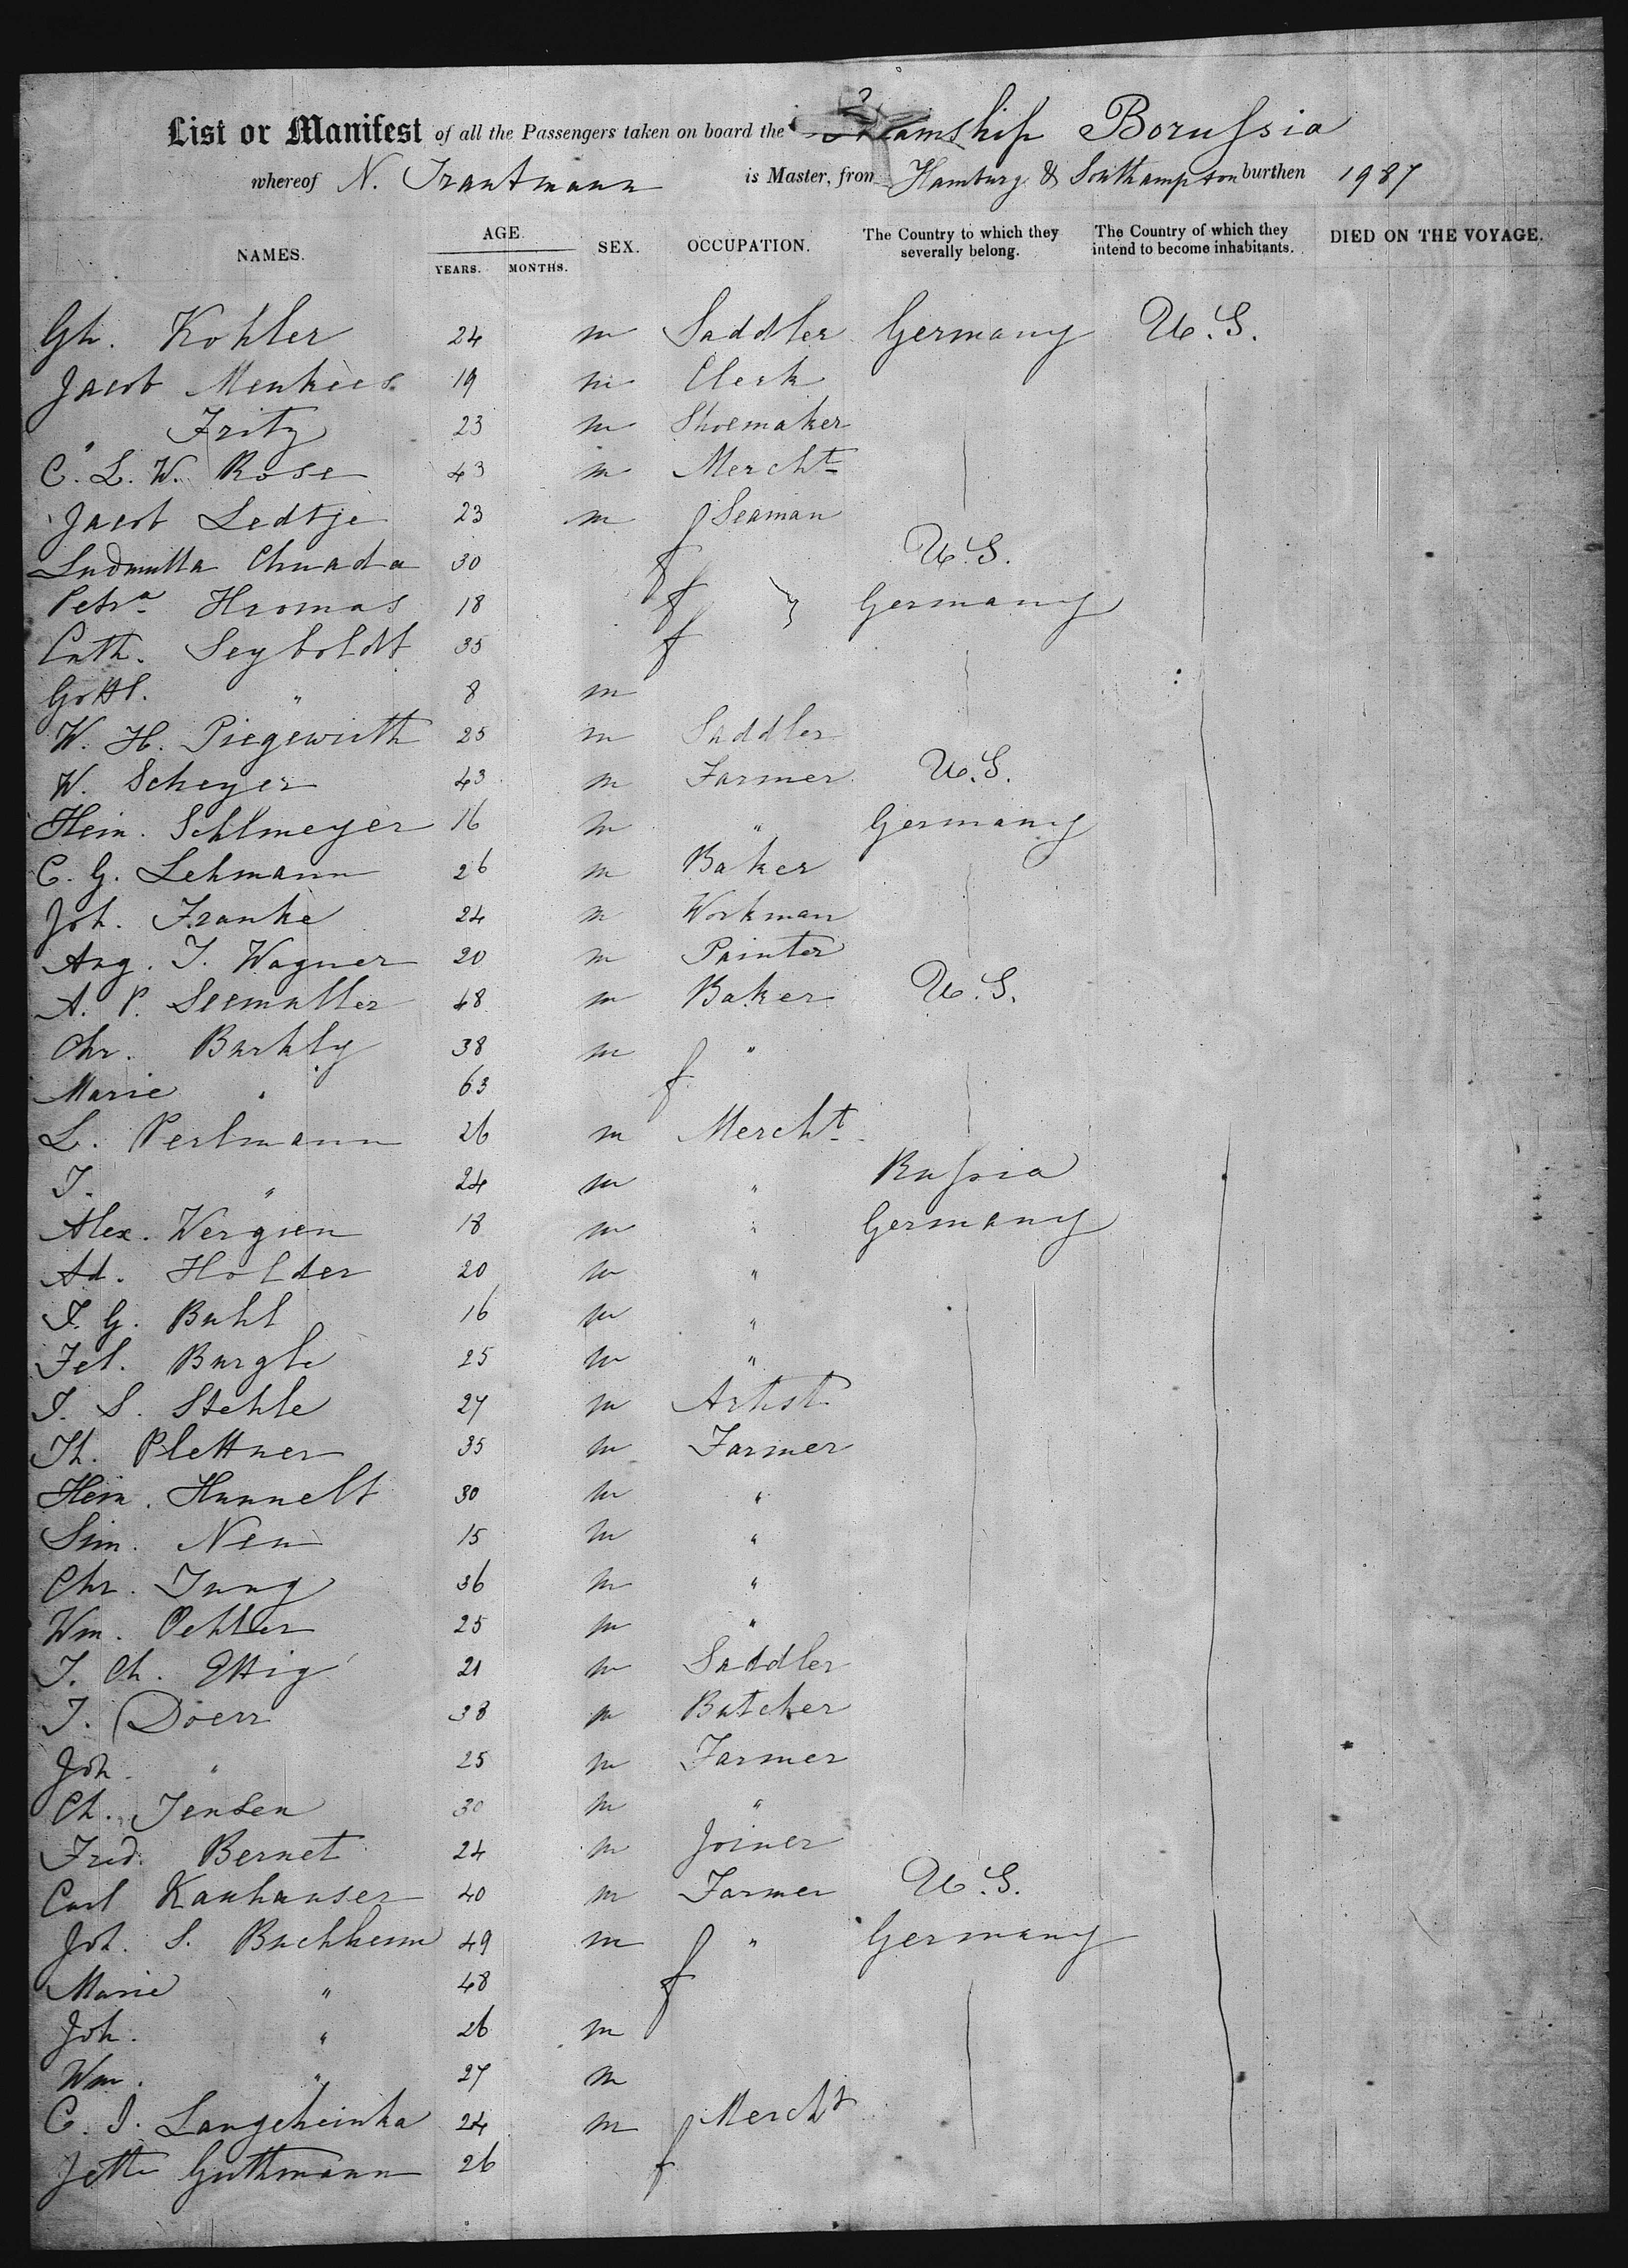 List or Manifest of all the Passengers taken on board the Steamship Borussia
whereof N. Trautmann is Master, from Hamburg & Southampton burthen 1987
NAMES. AGE. YEARS. MONTHS. SEX. OCCUPATION. The Country to which they severally belong. The Country of which they intend to become inhabitants. DIED ON THE VOYAGE.
Gh. Kohler 24 m Saddler Germany U.S.
Jacob Menkees 19 m Clerk
" Fritz 23 m Shoemaker
C. L. W. Rose 43 m Mercht
Jacob Ledtje 23 m Seaman
Ludmilla Chuada 30 f U.S.
Petra Hromas 18 f } Germany
Cath. Seyboldt 35 f
Gottl. " 8 m
W. H. Piegewirth 25 m Saddler
W. Scheyer 43 m Farmer U.S.
Hein. Sehlmeyer 16 m " Germany
C. G. Lehmann 26 m Baker
Joh. Franke 24 m Workman
Aug. T. Wagner 20 m Painter
A. P. Seemuller 48 m Baker U.S.
Chr. Burkly 38 m "
Marie " 63 f
L. Perlmann 26 m Mercht
J. " 24 m " Russia
Alex. Wergien 18 m " Germany
Ad. Holder 20 m "
J. G. Buhl 16 m "
Fel. Burgle 25 m "
J. S. Stehle 27 m Artist
Th. Plettner 35 m Farmer
Hein. Hunnelt 30 m "
Sim. Neu 15 m "
Chr. Jung 36 m "
Wm. Oehler 25 m "
J. Ch. Ettig 21 m Saddler
J. Doerr 38 m Butcher
Joh. " 25 m Farmer
Ch. Jensen 30 m "
Fred. Bernet 24 m Joiner
Carl Kauhauser 40 m Farmer U.S.
Joh. S. Buchheim 49 m " Germany
Marie " 48 f
Joh. " 26 m
Wm. " 27 m
C. J. Langeheinka 24 m Mercht
Jette Guthmann 26 f